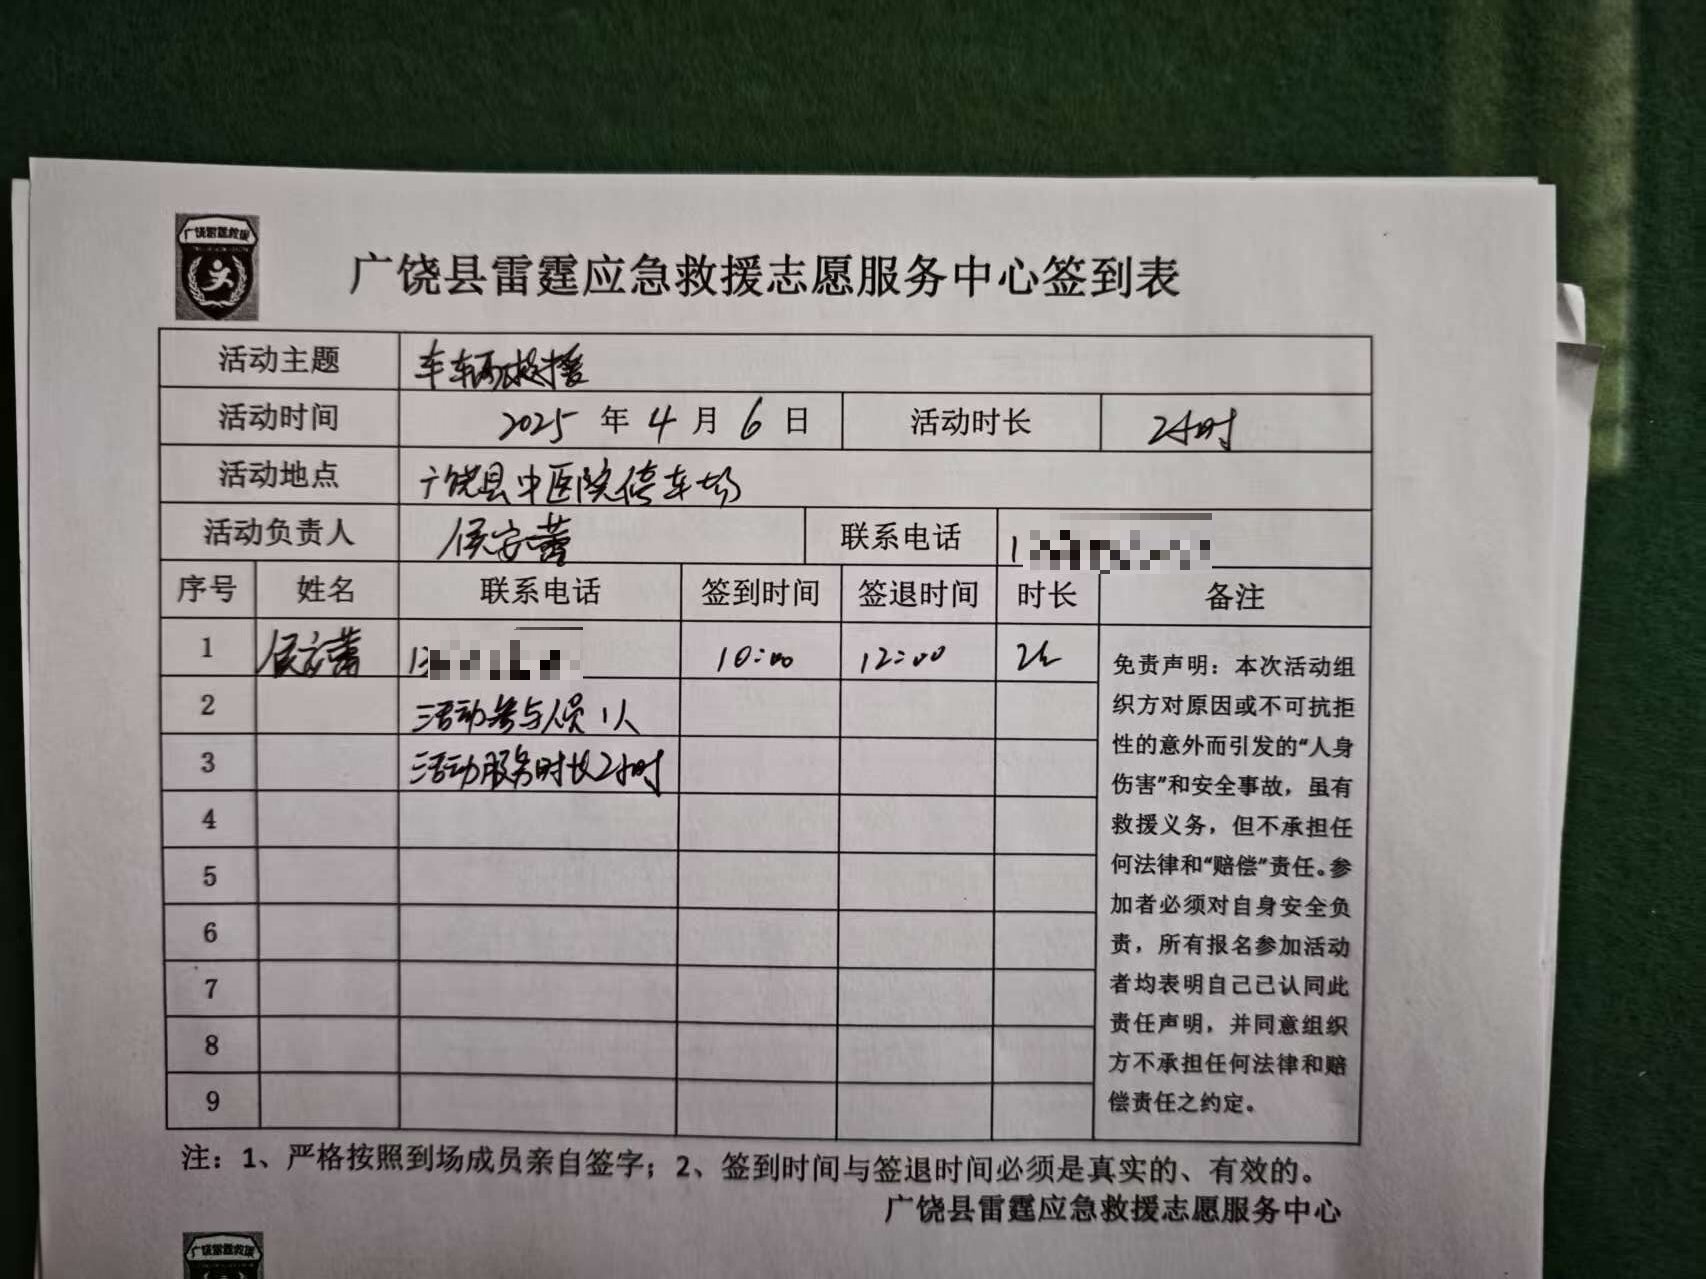 广饶雷霆救援
广饶县雷霆应急救援志愿服务中心签到表
活动主题 车辆救援
活动时间 2025 年 4 月 6 日 活动时长 2小时
活动地点 广饶县中医院停车场
活动负责人 侯安蕾 联系电话 1
序号 姓名 联系电话 签到时间 签退时间 时长 备注
1 侯安蕾 13 10:00 12:00 2h
2 活动参与人员 1人
3 活动服务时长2小时
4
5
6
7
8
9
免责声明：本次活动组
织方对原因或不可抗拒
性的意外而引发的“人身
伤害”和安全事故，虽有
救援义务，但不承担任
何法律和“赔偿”责任。参
加者必须对自身安全负
责，所有报名参加活动
者均表明自己已认同此
责任声明，并同意组织
方不承担任何法律和赔
偿责任之约定。
注：1、严格按照到场成员亲自签字；2、签到时间与签退时间必须是真实的、有效的。
广饶县雷霆应急救援志愿服务中心
广饶雷霆救援